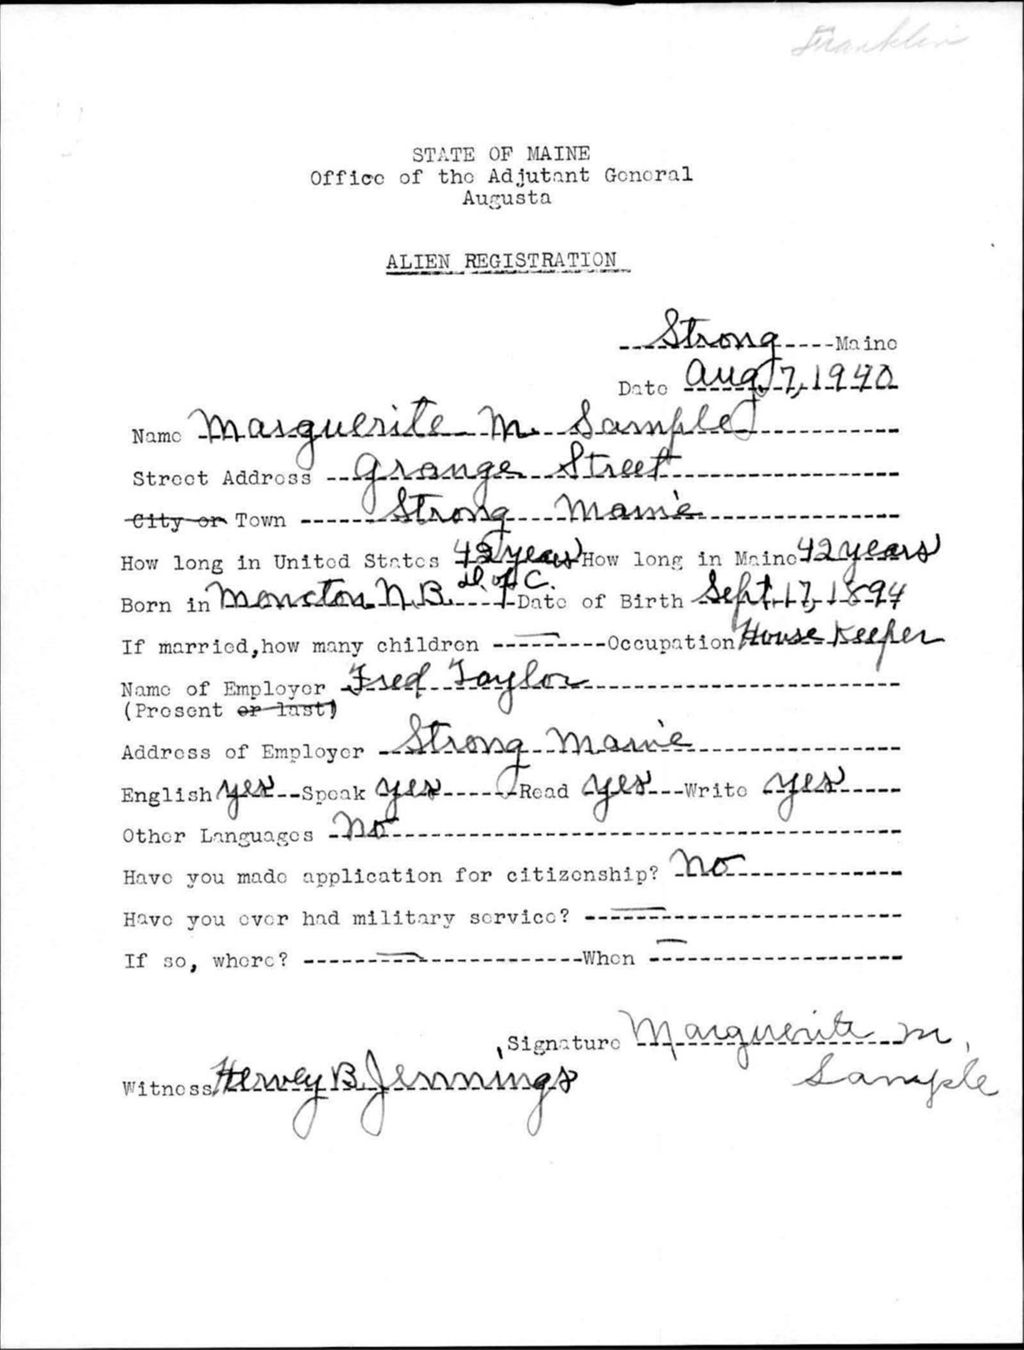 Franklin
STATE OF MAINE
Office of the Adjutant General
Augusta
ALIEN REGISTRATION
Strong Maine
Date Aug. 7, 1940
Name Marguerite M. Sample
Street Address Grange Street
City or Town Strong Maine
How long in United States 42 years How long in Maine 42 years
Born in Moncton N.B. D. of C. Date of Birth Sept. 17, 1894
If married, how many children — Occupation House Keeper
Name of Employer Fred Taylor
(Present or last)
Address of Employer Strong Maine
English yes Speak yes Read yes Write yes
Other Languages No
Have you made application for citizenship? No
Have you ever had military service? —
If so, where? — When —
Signature Marguerite M.
Sample
Witness Hervey B. Jennings